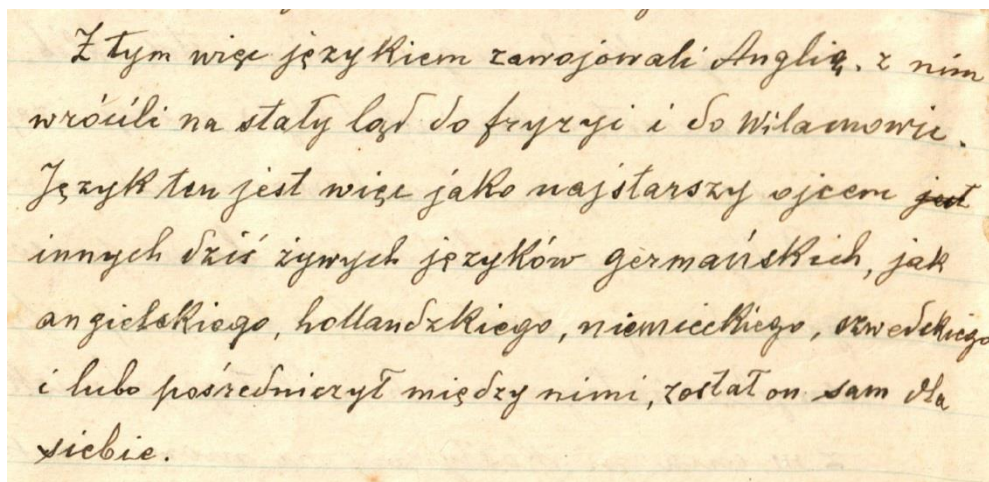 Z tym więc językiem zawojowali Anglią. z nim
wrócili na stały ląd do fryzyi i do Wilamowic.
Język ten jest więc jako najstarszy ojcem jest
innych dziś żywych języków germańskich, jak
angielskiego, hollandzkiego, niemieckiego, szwedskiego
i lubo pośredniczył między nimi, został on sam dla
siebie.